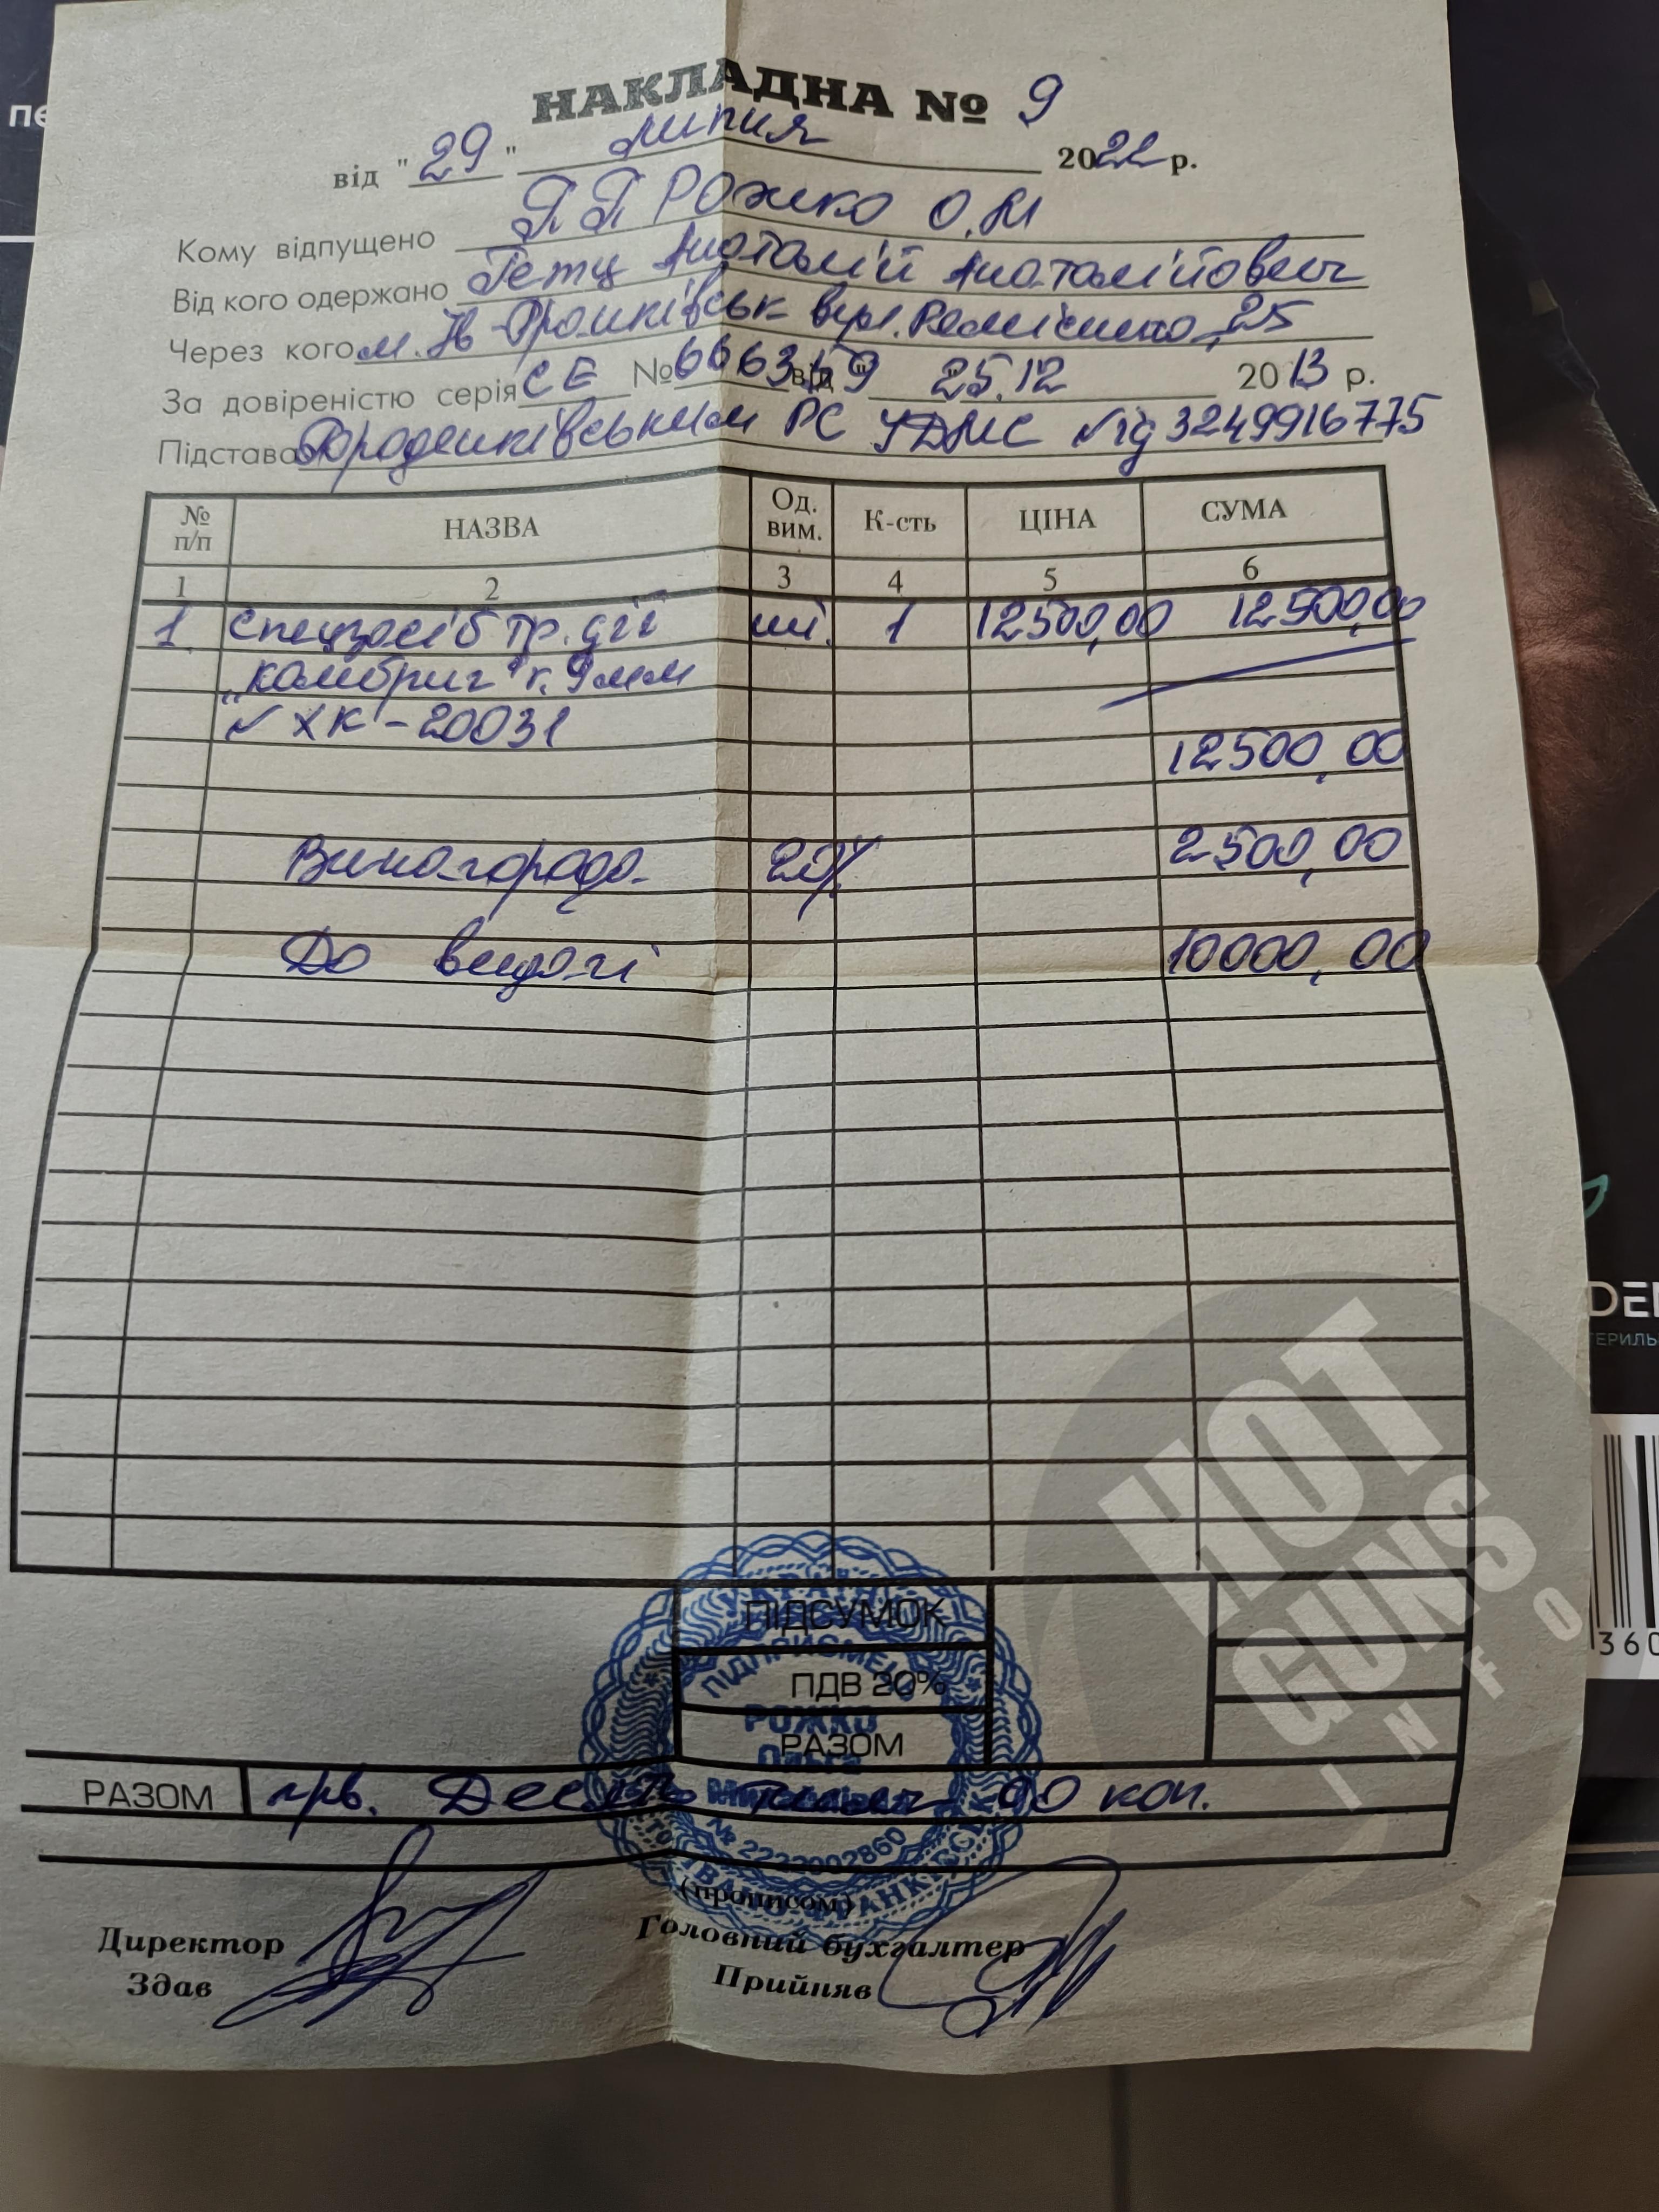 НАКЛАДНА № 9
від "29" липня 2022 р.
Кому відпущено ПП Рожко О.М
Від кого одержано Гетц Анатолій Анатолійович
Через кого м. Ів-Франківськ вул.
25
За довіреністю серія СЕ № 666359 від " 25.12 2013 р.
Підстава Городенківським РС УДМС №ід 3249916775
№ п/п НАЗВА Од. вим. К-сть ЦІНА СУМА
1 2 3 4 5 6
1. спецзасіб тр. дії шт. 1 12500,00 12500,00
"Колибри" к. 9мм
№ ХК-20031
12500,00
Винагорода 20% 2500,00
До видачі 10000,00
ПІДСУМОК
ПДВ 20%
РАЗОМ
РАЗОМ грв. Десять тисяч 00 коп.
(прописом)
Директор Головний бухгалтер
Здав Прийняв
УКРАЇНА
ПІДПРИЄМЕЦЬ
РОЖКО
Ольга
№ 2222002860
HOT
GUNS
INFO
пе
DE
ЕРИЛЬ
360